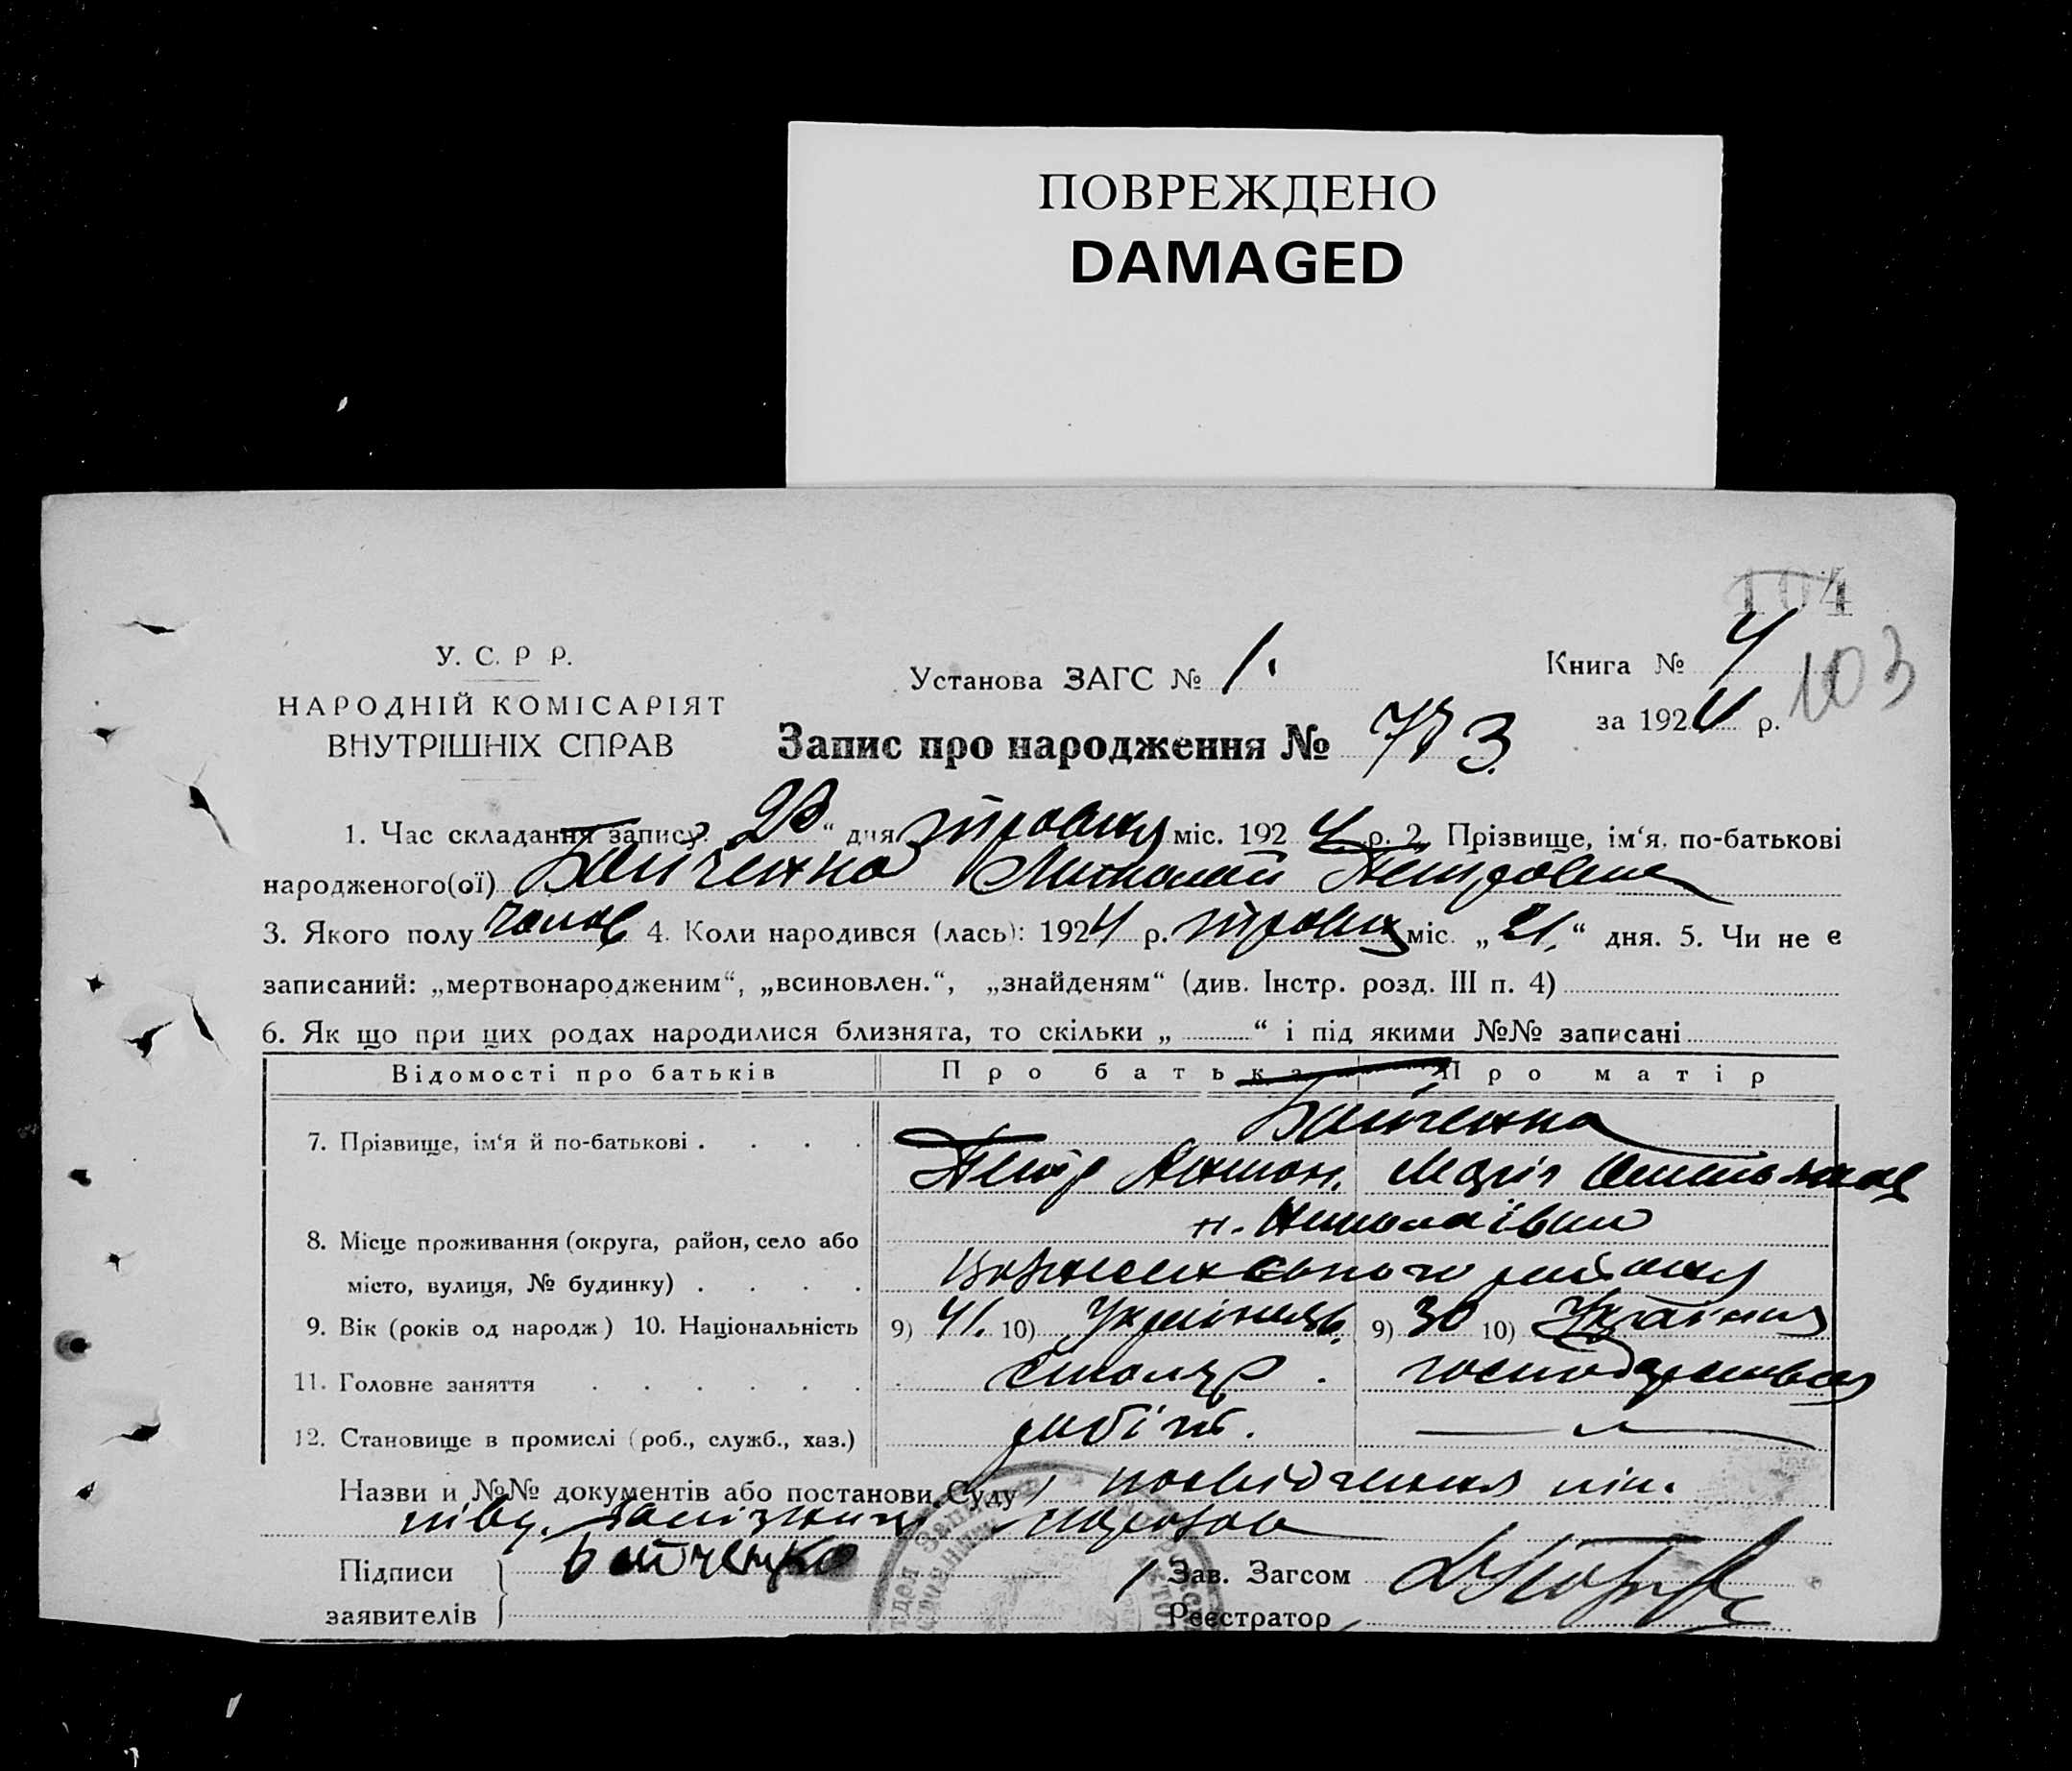 ПОВРЕЖДЕНО
DAMAGED
104
У. С. Р Р.
Установа ЗАГС № 1.
Книга № 4
103
НАРОДНІЙ КОМІСАРІЯТ
ВНУТРІШНІХ СПРАВ
за 1924 р.
Запис про народження № 783
1. Час складання запису. 23 “ дня травня міс. 1924 р. 2. Прізвище, ім‘я, по-батькові
народженого(ої) Байченко Миколай Петрович
3. Якого полу чолов 4. Коли народився (лась): 1924 р. травня міс. „ 21. “ дня. 5. Чи не є
записаний: „мертвонародженим“, „всиновлен.“, „знайденям“ (див. Інстр. розд. III п. 4)
6. Як що при цих родах народилися близнята, то скільки „ “ і під якими №№ записані
Відомості про батьків Про батька Про матір
Байченко
7. Прізвище, ім‘я й по-батькові
Петр Антон. Марія
8. Місце проживання (округа, район, село або
місто, вулиця, № будинку)
района
9. Вік (років од народж) 10. Національність 9) 41. 10) Українець. 9) 30 10) Українка
11. Головне заняття столяр. господарства
12. Становище в промислі (роб., служб., хаз.) робітн.
Назви и №№ документів або постанови Суду посвідчення
півд. залізниці
Підписи Байченко
Зав. Загсом
заявителів
Реєстратор